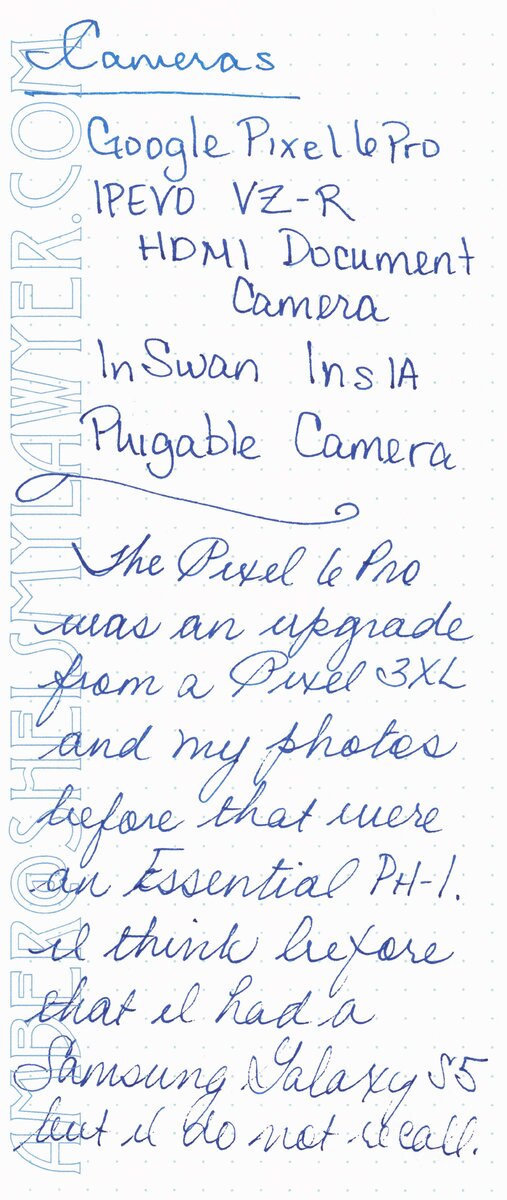 Cameras
Google Pixel 6 Pro
IPEVO VZ-R
HDMI Document
Camera
InSwan Ins1A
Plugable Camera
The Pixel 6 Pro
was an upgrade
from a Pixel 3XL
and my photos
before that were
an Essential PH-1.
I think before
that I had a
Samsung Galaxy S5
but I do not recall.
AMBER@SHELSMYLAWYER.COM